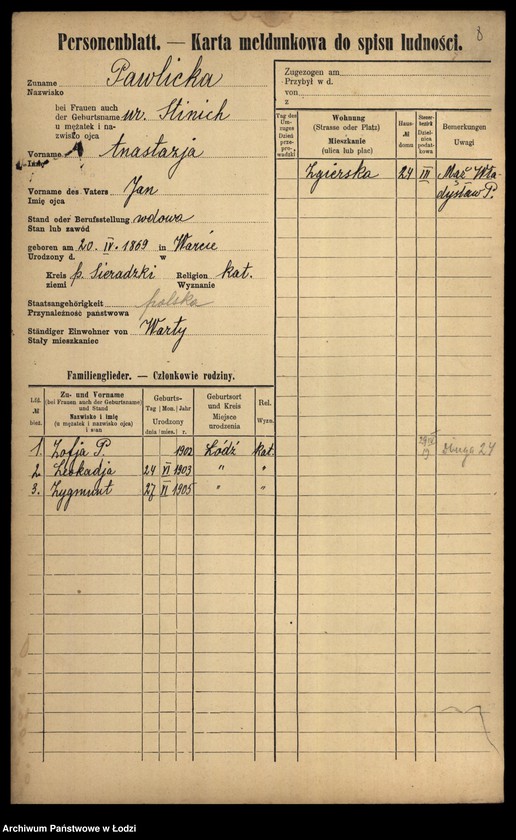 8
Personenblatt. — Karta meldunkowa do spisu ludności.
Zuname
Nazwisko
Pawlicka
bei Frauen auch
der Geburtsname
u mężatek i na-
zwisko ojca
ur. Stinich
Vorname
Imię
Anastazja
Vorname des Vaters
Imię ojca
Jan
Stand oder Berufsstellung
Stan lub zawód
wdowa
geboren am 20. IV. 1869 in Warcie
Urodzony d. w
Kreis
ziemi
p. Sieradzki
Religion
Wyznanie
kat.
Staatsangehörigkeit
Przynależność państwowa
polska
Ständiger Einwohner von
Stały mieszkaniec
Warty
Familienglieder. — Członkowie rodziny.
Lfd.
№
bież.
Zu- und Vorname
(bei Frauen auch der Geburtsname)
und Stand
Nazwisko i imię
(u mężatek i nazwisko ojca)
i stan
Geburts-
Tag Mon. Jahr
Urodzony
dnia mies. r.
Geburtsort
und Kreis
Miejsce
urodzenia
Rel.
Wyzn.
1. Zofja P. 1902 Łódź kat.
2. Leokadja 24 VI 1903 " "
3. Zygmunt 27 VI 1905 " "
Zugezogen am
Przybył w d.
von
z
Tag des
Um-
zuges
Dzień
prze-
prowadzki
Wohnung
(Strasse oder Platz)
Mieszkanie
(ulica lub plac)
Haus-
№
domu
Steuer-
bezirk
Dziel-
nica
podat-
kowa
Bemerkungen
Uwagi
Zgierska 24 III Mąż Wła-
dysław P.
Długa 24
Archiwum Państwowe w Łodzi